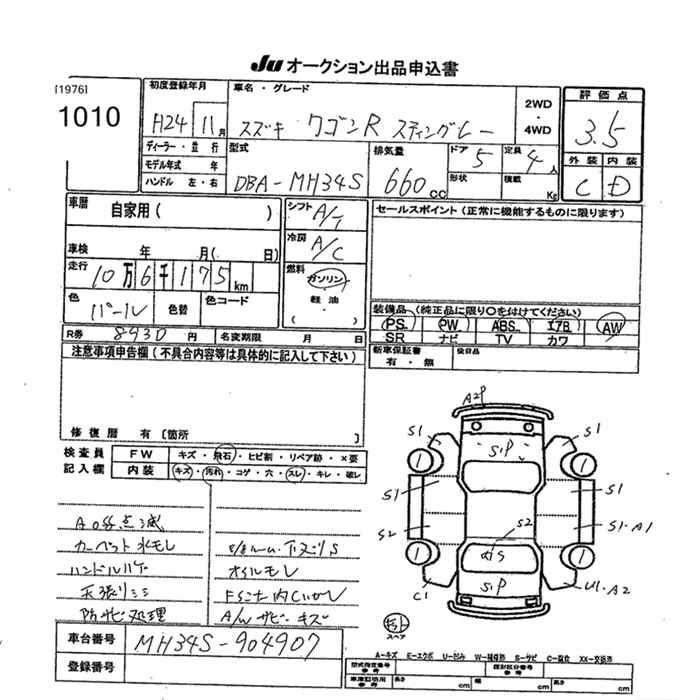 Ju オークション出品申込書
[1976]
1010
初度登録年月
H24 11月
車名・グレード
スズキ ワゴンR スティングレー
2WD・4WD
評価点
3.5
外装 内装
C D
ディーラー・並行
モデル年式 年
ハンドル 左・右
型式
DBA-MH34S
排気量
660cc
ドア 5
形状
定員 4人
積載 Kg
車暦
自家用( )
車検 年 月( 日)
走行
10万6千175km
色
パール
色替
色コード
シフト A/T
冷房 A/C
燃料
ガソリン
軽油
( )
セールスポイント(正常に機能するものに限ります)
装備品(純正品に限り○を付けてください)
PS PW ABS エアB AW
SR ナビ TV カワ
R券 8930円 名変期限 月 日
新車保証書
有・無
後日品
注意事項申告欄(不具合内容等は具体的に記入して下さい)
修復歴 有〔箇所 〕
検査員記入欄
FW キズ・飛石・ヒビ割・リペア跡・×要
内装 キズ・汚れ・コゲ・穴・スレ・キレ・破レ
カーペット水モレ
オイルモレ
防サビ処理
A/Wサビ・キズ
A2P
S1
S1
S・P
S1
S1
S2
S2
S1・A1
S・P
C1
U1・A2
スペア
車台番号
MH34S-904907
登録番号
A-キズ E-エクボ U-凹み W-補修跡 S-サビ C-腐食 XX-交換済
型式指定番号
参考
類別区分番号
参考
車庫証明用
参考
長さ cm 幅 cm 高さ cm